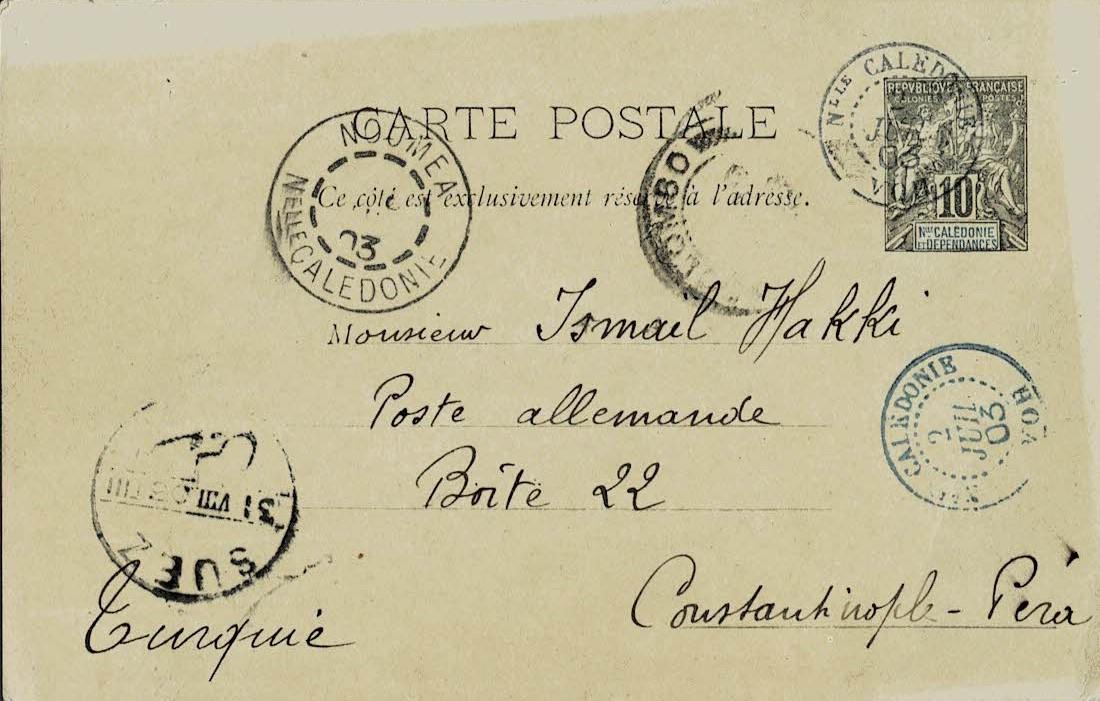 CARTE POSTALE
Ce côté est exclusivement réservé à l'adresse.
REPVBLIQVE FRANÇAISE
COLONIES POSTES
10
Nlle CALÉDONIE
ET DÉPENDANCES
Nlle CALEDONIE
03
NOUMEA
03
NELLE CALEDONIE
COLOMBO
Monsieur Ismael Hakki
Poste allemande
Boîte 22
Constantinople - Péra
Turquie
CALEDONIE VOH
2
JUIL
03
31 VIII
SUEZ